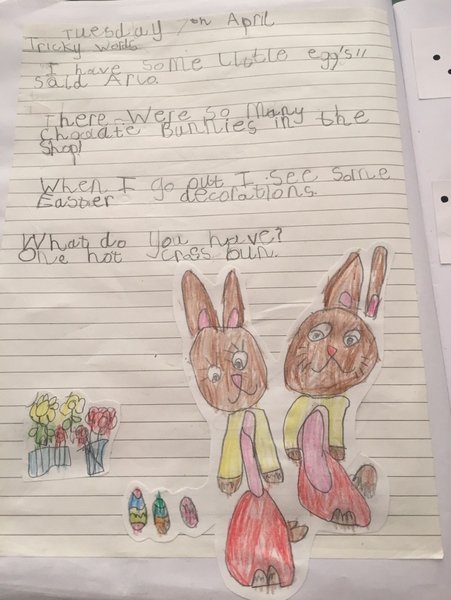 Tuesday 7th April
Tricky words
I have some little egg's"
said Arlo.
There were so many
chocolate Bunnies in the
shop!
When I go out I see some
Easter decorations.
What do you have?
One hot cross bun.